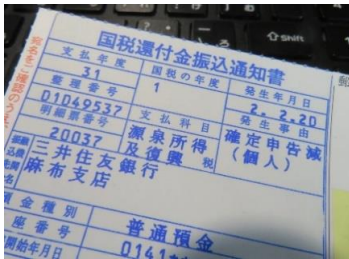 国税還付金振込通知書
宛名をご確認のうえ
支払年度 国税の年度 発生年月日
31 1 2. 2.20
整理番号 支払科目 発生事由
01049537 源泉所得及復興税 確定申告減(個人)
明細票番号
20037
三井住友銀行
麻布支店
預金種別 普通預金
座番号 0141
開始年月日
Shift